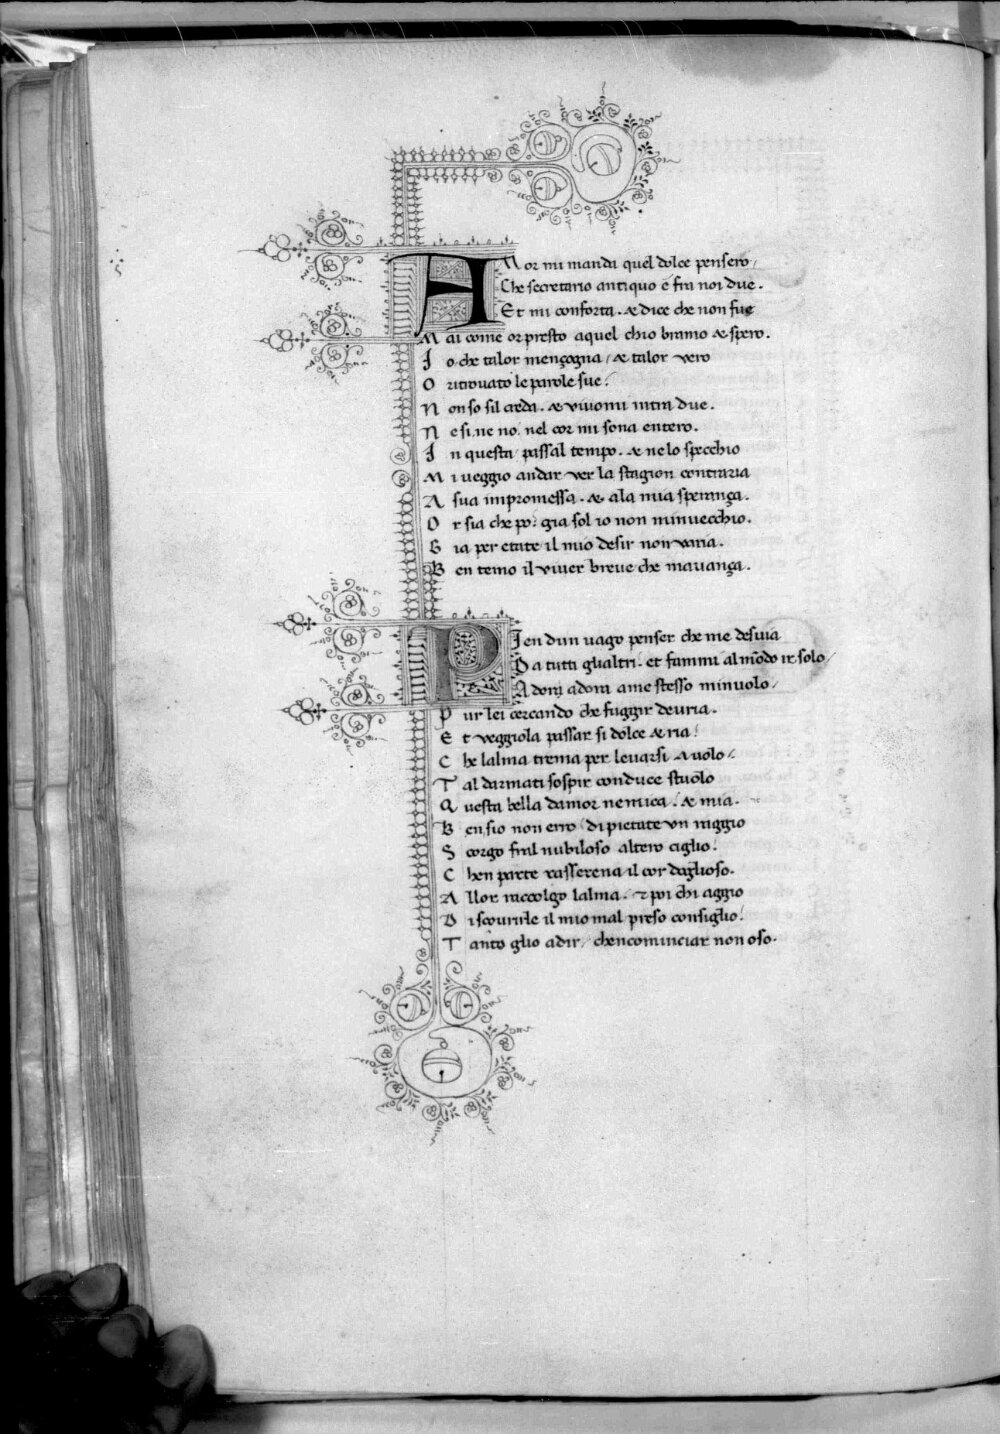 AMor mi manda quel dolce pensero/
Che secretario antiquo e fra noi due.
Et mi conforta. & dice che non fue
Mai come or presto aquel chio bramo & spero.
Io. che talor mençogna/ & talor vero
O ritrovato le parole sue/
Non so sil creda. & vivomi intra due.
Ne si. ne no. nel cor mi sona entero.
In questa passal tempo. & ne lo specchio
Mi veggio andar ver la stagion contraria
A sua impromessa. & ala mia sperança.
Or sia che po: gia sol io non minvecchio.
Gia per etate il mio desir non varia.
Ben temo il viver breve che mavança.
PIen dun vago penser che me desvia
Da tutti glialtri. et fammi al modo ir solo/
Adora adora ame stesso minvolo/
Pur lei cercando che fuggir devria.
Et veggiola passar si dolce & ria/
Che lalma trema per levarsi a volo/
Tal darmati sospir conduce stuolo
Questa bella damor nemica. & mia.
Ben sio non erro di pietate un raggio
Scorgo fral nubiloso altero ciglio/
Chen parte rasserena il cor doglioso.
Allor raccolgo lalma. & poi chi aggio
Discovrirle il mio mal preso consiglio/
Tanto glio adir/ chencominciar non oso.